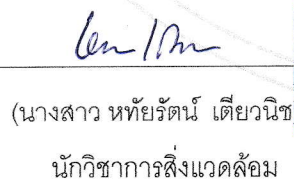 (นางสาว หทัยรัตน์ เตียวนิช
นักวิชาการสิ่งแวดล้อม